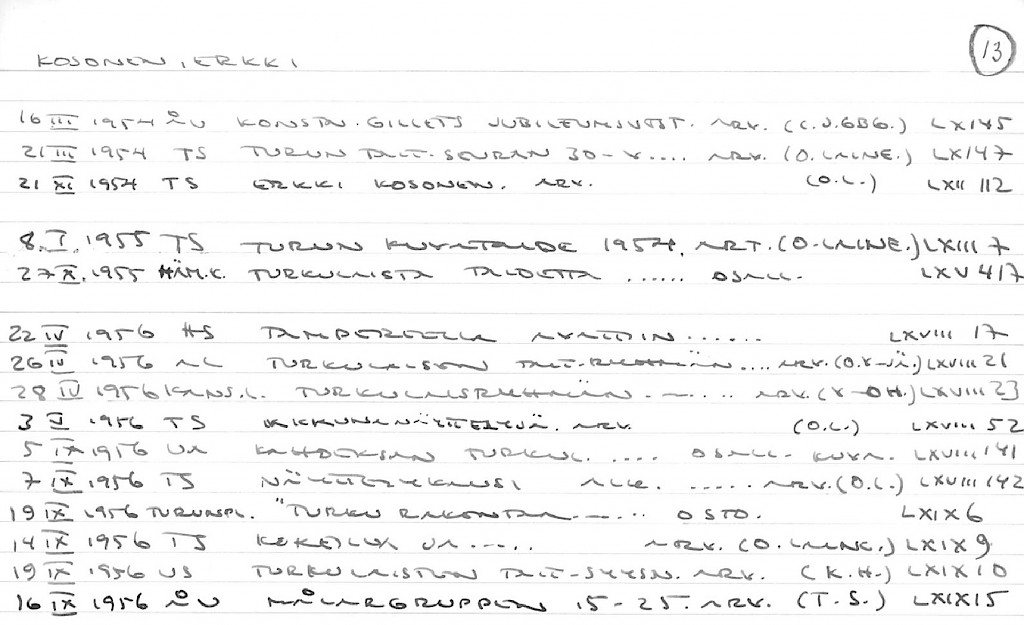 13
KOSONEN, ERKKI
16 III 1954 ÅU KONSTN. GILLETS JUBILEUMSUTST. ARV. (C.J.GBG.) LXI 45
21 III 1954 TS TURUN TAIT-SEURAN 30-V.... ARV. (O.LAINE.) LXI 47
21 XI 1954 TS ERKKI KOSONEN. ARV. (O.L.) LXII 112
8.I.1955 TS TURUN KUVATAIDE 1954. ART. (O.LAINE.) LXIII 7
27 X.1955 HÄM.K. TURKULAISTA TAIDETTA ...... OSALL. LXV 417
22 IV 1956 HS TAMPEREELLA AVATTIIN ...... LXVIII 17
26 IV 1956 AL TURKULAISTEN TAIT-RYHMÄN .... ARV. (O.V-JÄ.) LXVIII 21
28 IV 1956 KANS.L. TURKULAISRYHMÄN ...... ARV. (V-OH.) LXVIII 23
3 V 1956 TS IKKUNANÄYTTELYJÄ. ARV. (O.L.) LXVIII 52
5 IX 1956 UA KAHDEKSAN TURKUL. .... OSALL. KUVA. LXVIII 141
7 IX 1956 TS NÄYTTELYKAUSI ALK. ..... ARV. (O.L.) LXVIII 142
19 IX 1956 TURUNPL. "TURKU RAKENTAA ...... OSTO. LXIX 6
14 IX 1956 TS KOKEILUA JA ..... ARV. (O.LAINE.) LXIX 9
19 IX 1956 US TURKULAISTEN TAIT-SYYSN. ARV. (K.H.) LXIX 10
16 IX 1956 ÅU MÅLARGRUPPEN 15-25. ARV. (T.S.) LXIX 15